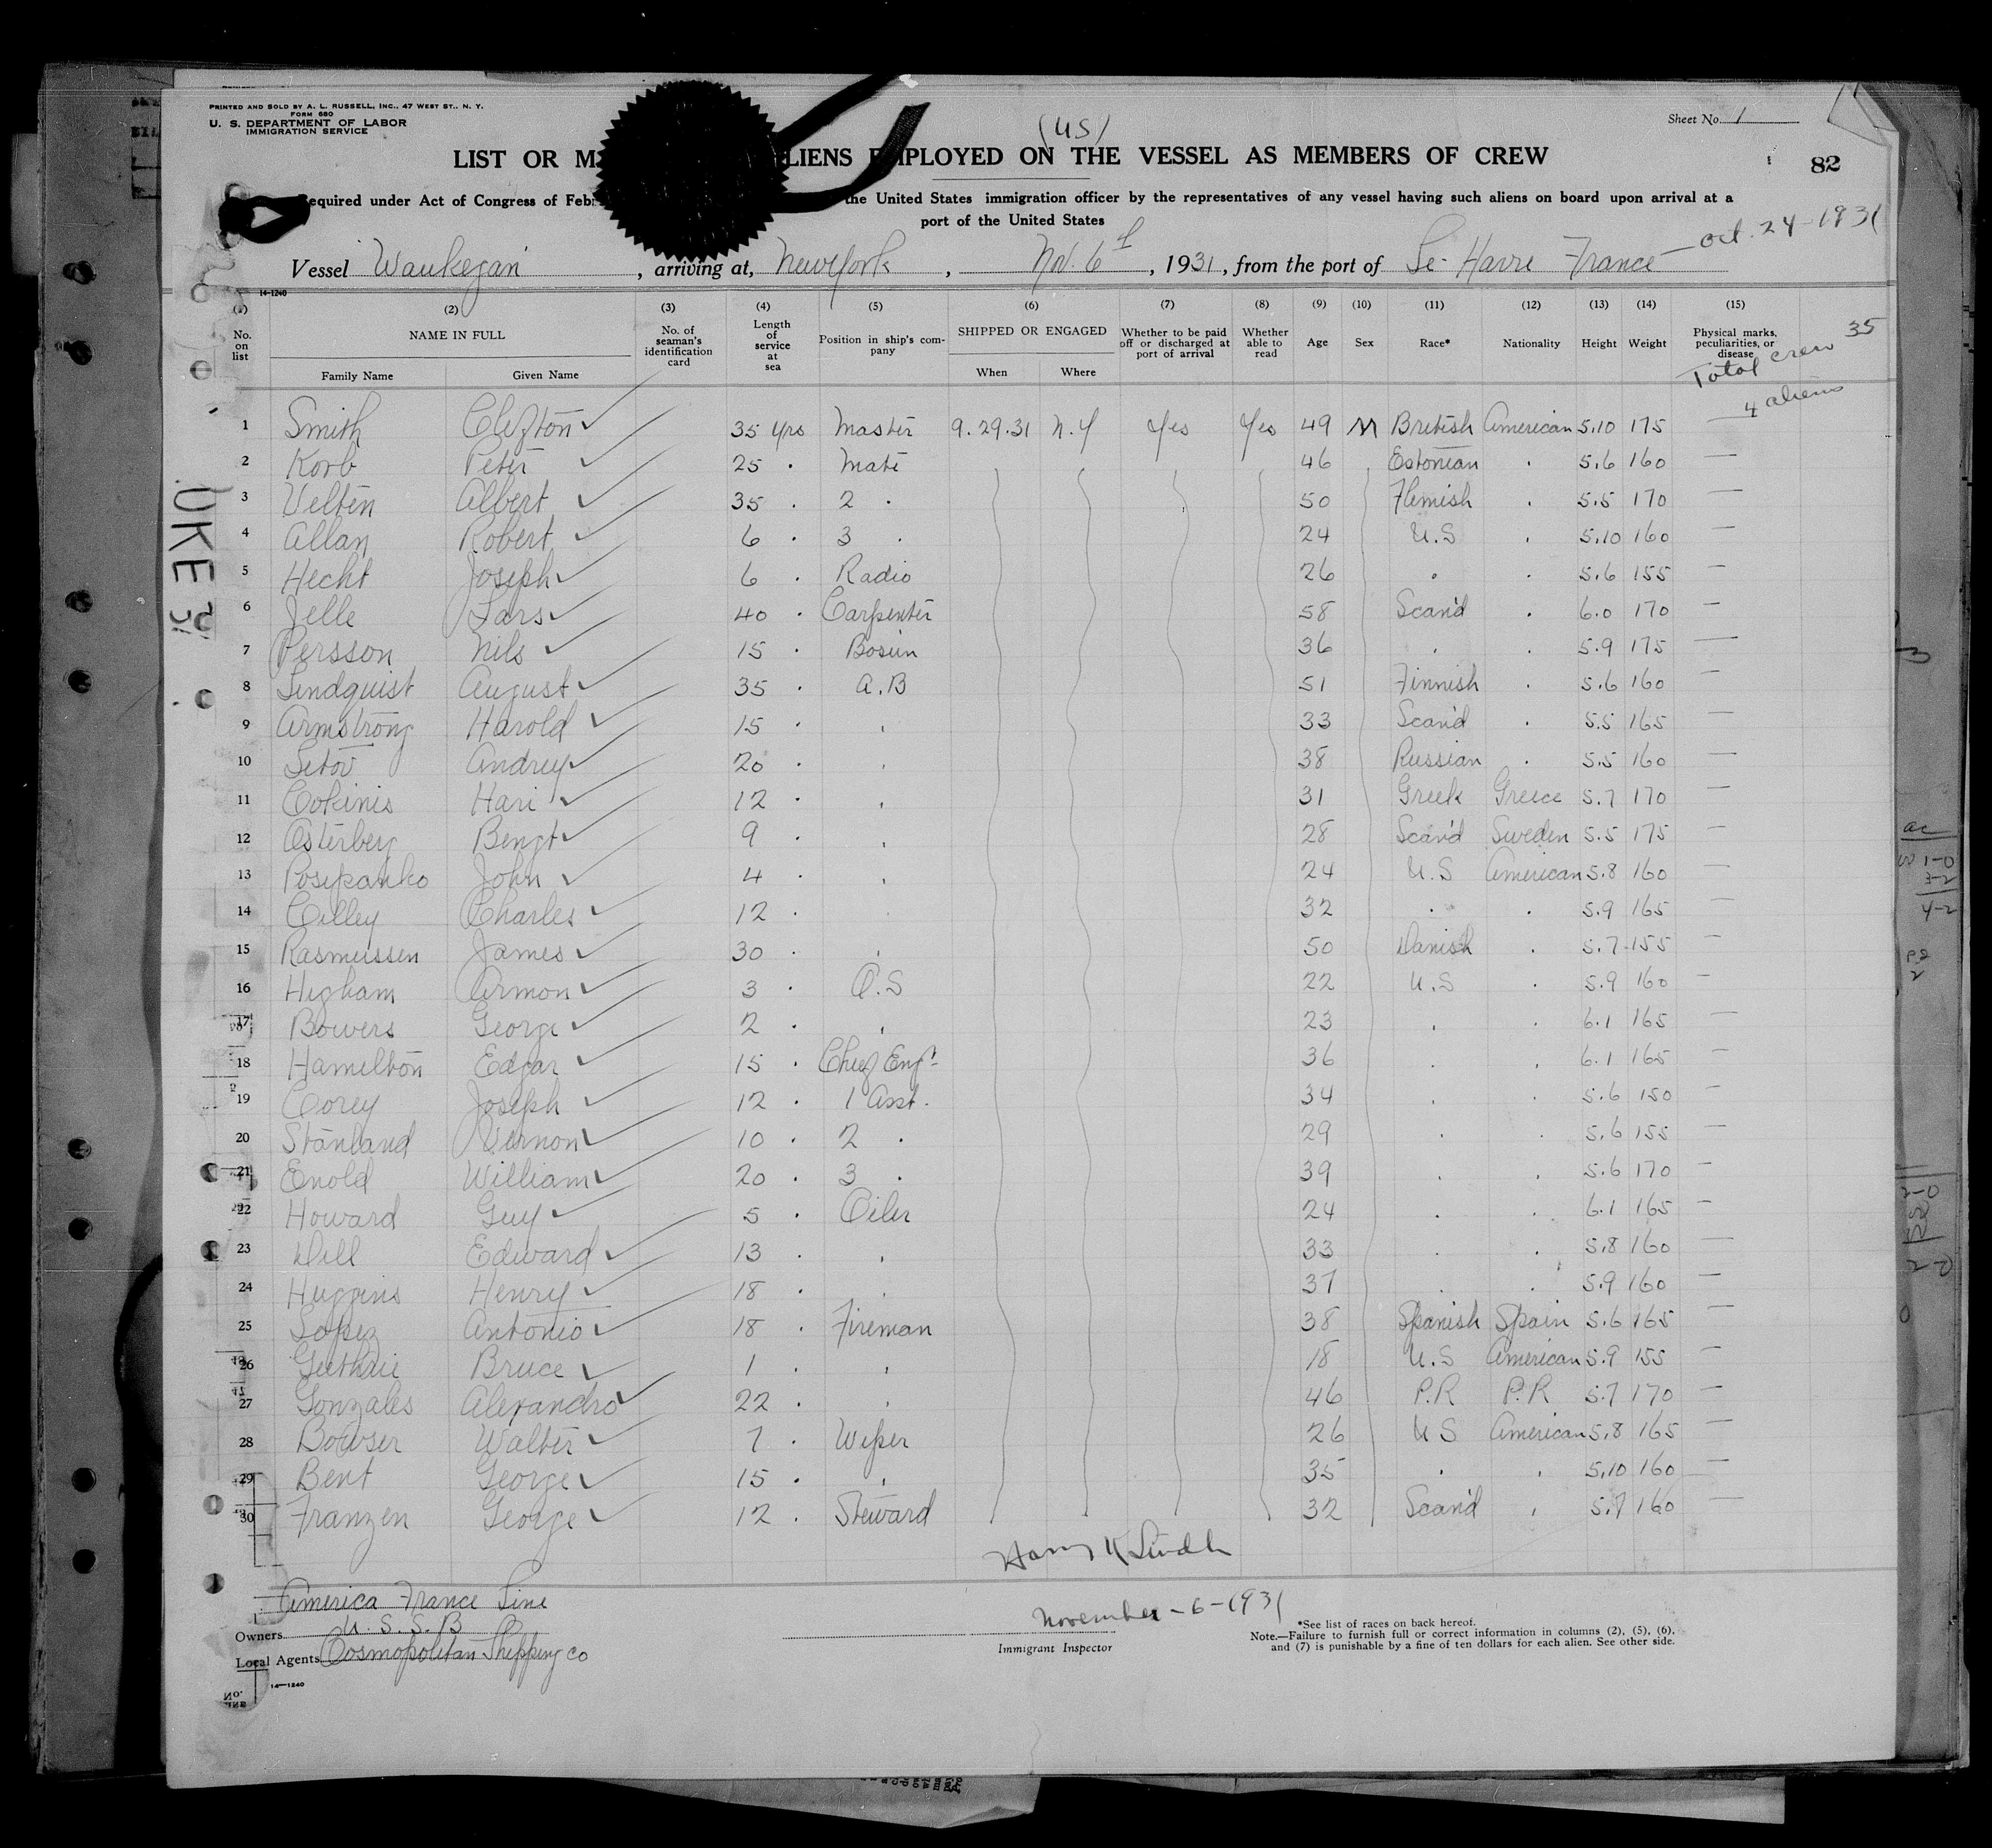 PRINTED AND SOLD BY A. L. RUSSELL, INC., 47 WEST ST., N. Y.
FORM 680
U. S. DEPARTMENT OF LABOR
IMMIGRATION SERVICE
Sheet No. 1
(US)
LIST OR LIENS EMPLOYED ON THE VESSEL AS MEMBERS OF CREW
82
equired under Act of Congress of Feb the United States immigration officer by the representatives of any vessel having such aliens on board upon arrival at a
port of the United States
Oct. 24-1931
Vessel Waukegan, arriving at, New York, Nov. 6th, 1931, from the port of Le Havre France
14-1240
(2) (3) (4) (5) (6) (7) (8) (9) (10) (11) (12) (13) (14) (15)
No. on list NAME IN FULL Family Name Given Name No. of seaman's identification card Length of service at sea Position in ship's company SHIPPED OR ENGAGED When Where Whether to be paid off or discharged at port of arrival Whether able to read Age Sex Race* Nationality Height Weight Physical marks, peculiarities, or disease
Total crew 35
4 aliens
1 Smith Clifton 35 yrs Master 9.29.31 N.Y Yes Yes 49 M British American 5.10 175 —
2 Korb Peter 25 . Mate 46 Estonian . 5.6 160 —
3 Velten Albert 35 . 2 . 50 Flemish . 5.5 170 —
4 Allan Robert 6 . 3 . 24 U.S . 5.10 160 —
5 Hecht Joseph 6 . Radio 26 . . 5.6 155 —
6 Jelle Lars 40 . Carpenter 58 Scand . 6.0 170 —
7 Persson Nils 15 . Bosun 36 . . 5.9 175 —
8 Lindquist August 35 . A.B 51 Finnish . 5.6 160 —
9 Armstrong Harold 15 . . 33 Scand . 5.5 165 —
10 Setov Andrey 20 . . 38 Russian . 5.5 160 —
11 Cokinis Hari 12 . . 31 Greek Greece 5.7 170 —
12 Osterberg Bengt 9 . . 28 Scand Sweden 5.5 175 —
13 Posipanko John 4 . . 24 U.S American 5.8 160 —
14 Cilley Charles 12 . . 32 . . 5.9 165 —
15 Rasmussen James 30 . . 50 Danish . 5.7 155 —
16 Higham Armon 3 . O.S 22 U.S . 5.9 160 —
17 Bowers George 2 . . 23 . . 6.1 165 —
18 Hamilton Edgar 15 . Chief Engr 36 . . 6.1 165 —
19 Corey Joseph 12 . 1 Asst. 34 . . 5.6 150 —
20 Stanland Vernon 10 . 2 . 29 . . 5.6 155 —
21 Enold William 20 . 3 . 39 . . 5.6 170 —
22 Howard Guy 5 . Oiler 24 . . 6.1 165 —
23 Dill Edward 13 . . 33 . . 5.8 160 —
24 Huggins Henry 18 . . 37 . . 5.9 160 —
25 Lopez Antonio 18 . Fireman 38 Spanish Spain 5.6 165 —
26 Guthrie Bruce 1 . . 18 U.S American 5.9 155 —
27 Gonzales Alexandro 22 . . 46 P.R P.R 5.7 170 —
28 Bowser Walter 7 . Wiper 26 U S American 5.8 165 —
29 Bent George 15 . . 35 . . 5.10 160 —
30 Franzen George 12 . Steward 32 Scand . 5.7 160 —
America France Line
Owners U. S. S. B
Local Agents Cosmopolitan Shipping Co
14—1240
November-6-1931
Immigrant Inspector
*See list of races on back hereof.
Note.—Failure to furnish full or correct information in columns (2), (5), (6),
and (7) is punishable by a fine of ten dollars for each alien. See other side.